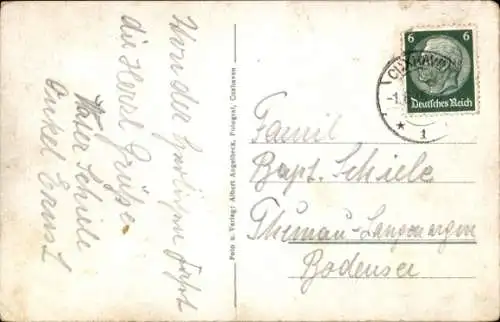 Von der herrlichen Fahrt
die Herzl Grüße
Vater Schiele
Onkel Ernst
Foto u. Verlag: Albert Angelbeck, Fotogost, Cuxhaven
6 6
Deutsches Reich
CUXHAVEN
* 1
Famil
Bapt. Schiele
Themau-Langenargen
Bodensee